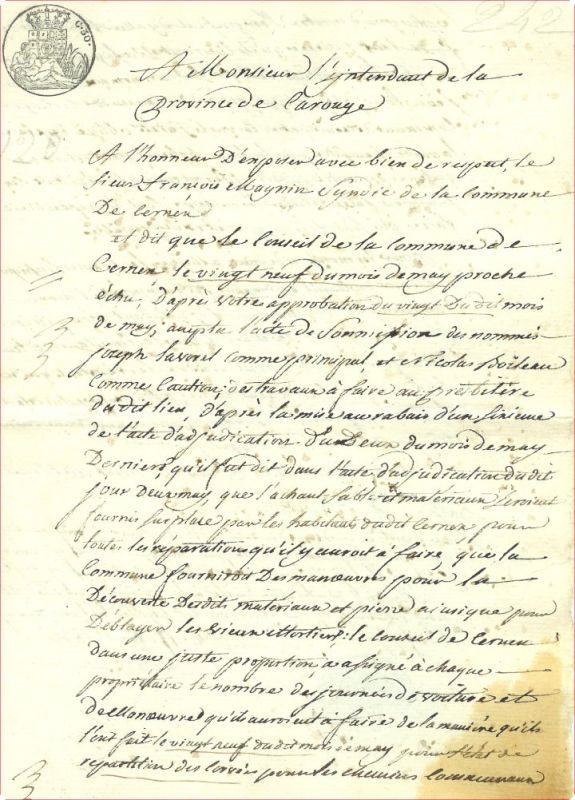 C. 30.
A Monsieur l'intendant de la
Province de Carouge
A l'honneur D'exposer avec bien de respect, le
sieur François Magnin Syndic de la Commune
De Cernex
et dit que le Conseil de la Commune de
Cernex le vingt neuf du mois de may proche
échu, D'après votre approbation du vingt Dudit mois
de may, accepta l'acte de Soumission des nommés
joseph Lavorel comme principal, et Nicolas Boileau
Comme Caution, des travaux à faire au presbitère
dudit lieu, D'après la mise au rabais d'un sixieme
de l'acte d'adjudication Du Deux du mois de may
Dernier, qu'il fut dit dans l'acte d'adjudication dudit
jour Deux may, que la chaux sable et materiaux seroient
fournis sur place par les habitans dudit Cernex pour
toutes les réparations qu'il y auroit à faire que la
Commune fourniroit Des manœuvres pour la
Découverte Desdits materiaux et pierre ainsi que pour
Déblayer les vieux : le Conseil de Cernex
dans une juste proportion, a assigné à chaque
propriétaire le nombre des journées de voiture et
de Manœuvre qu'ils auroient à faire de la manière qu'ils
l'ont fait le vingt neuf dudit mois de may pour l'état de
repartition des Corvées pour les chemins Communaux